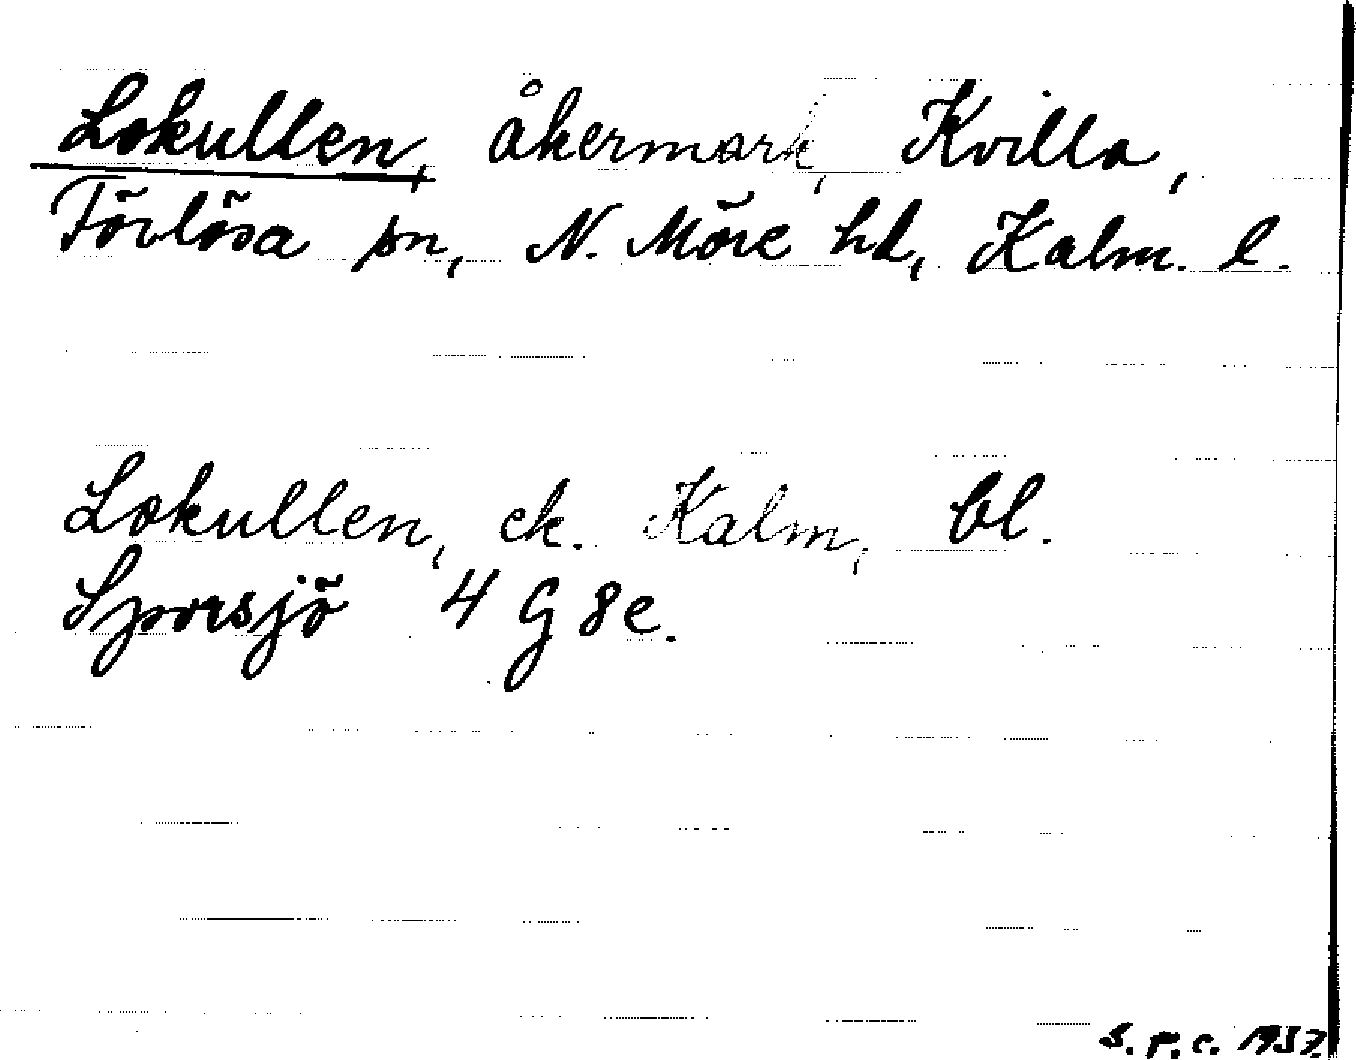 Lokullen, åkermark, Kvilla,
Förlösa sn, N. Möre hd, Kalm. l.
Lokullen, ek. Kalm, bl.
Sporsjö 4 G 8e.
1937.